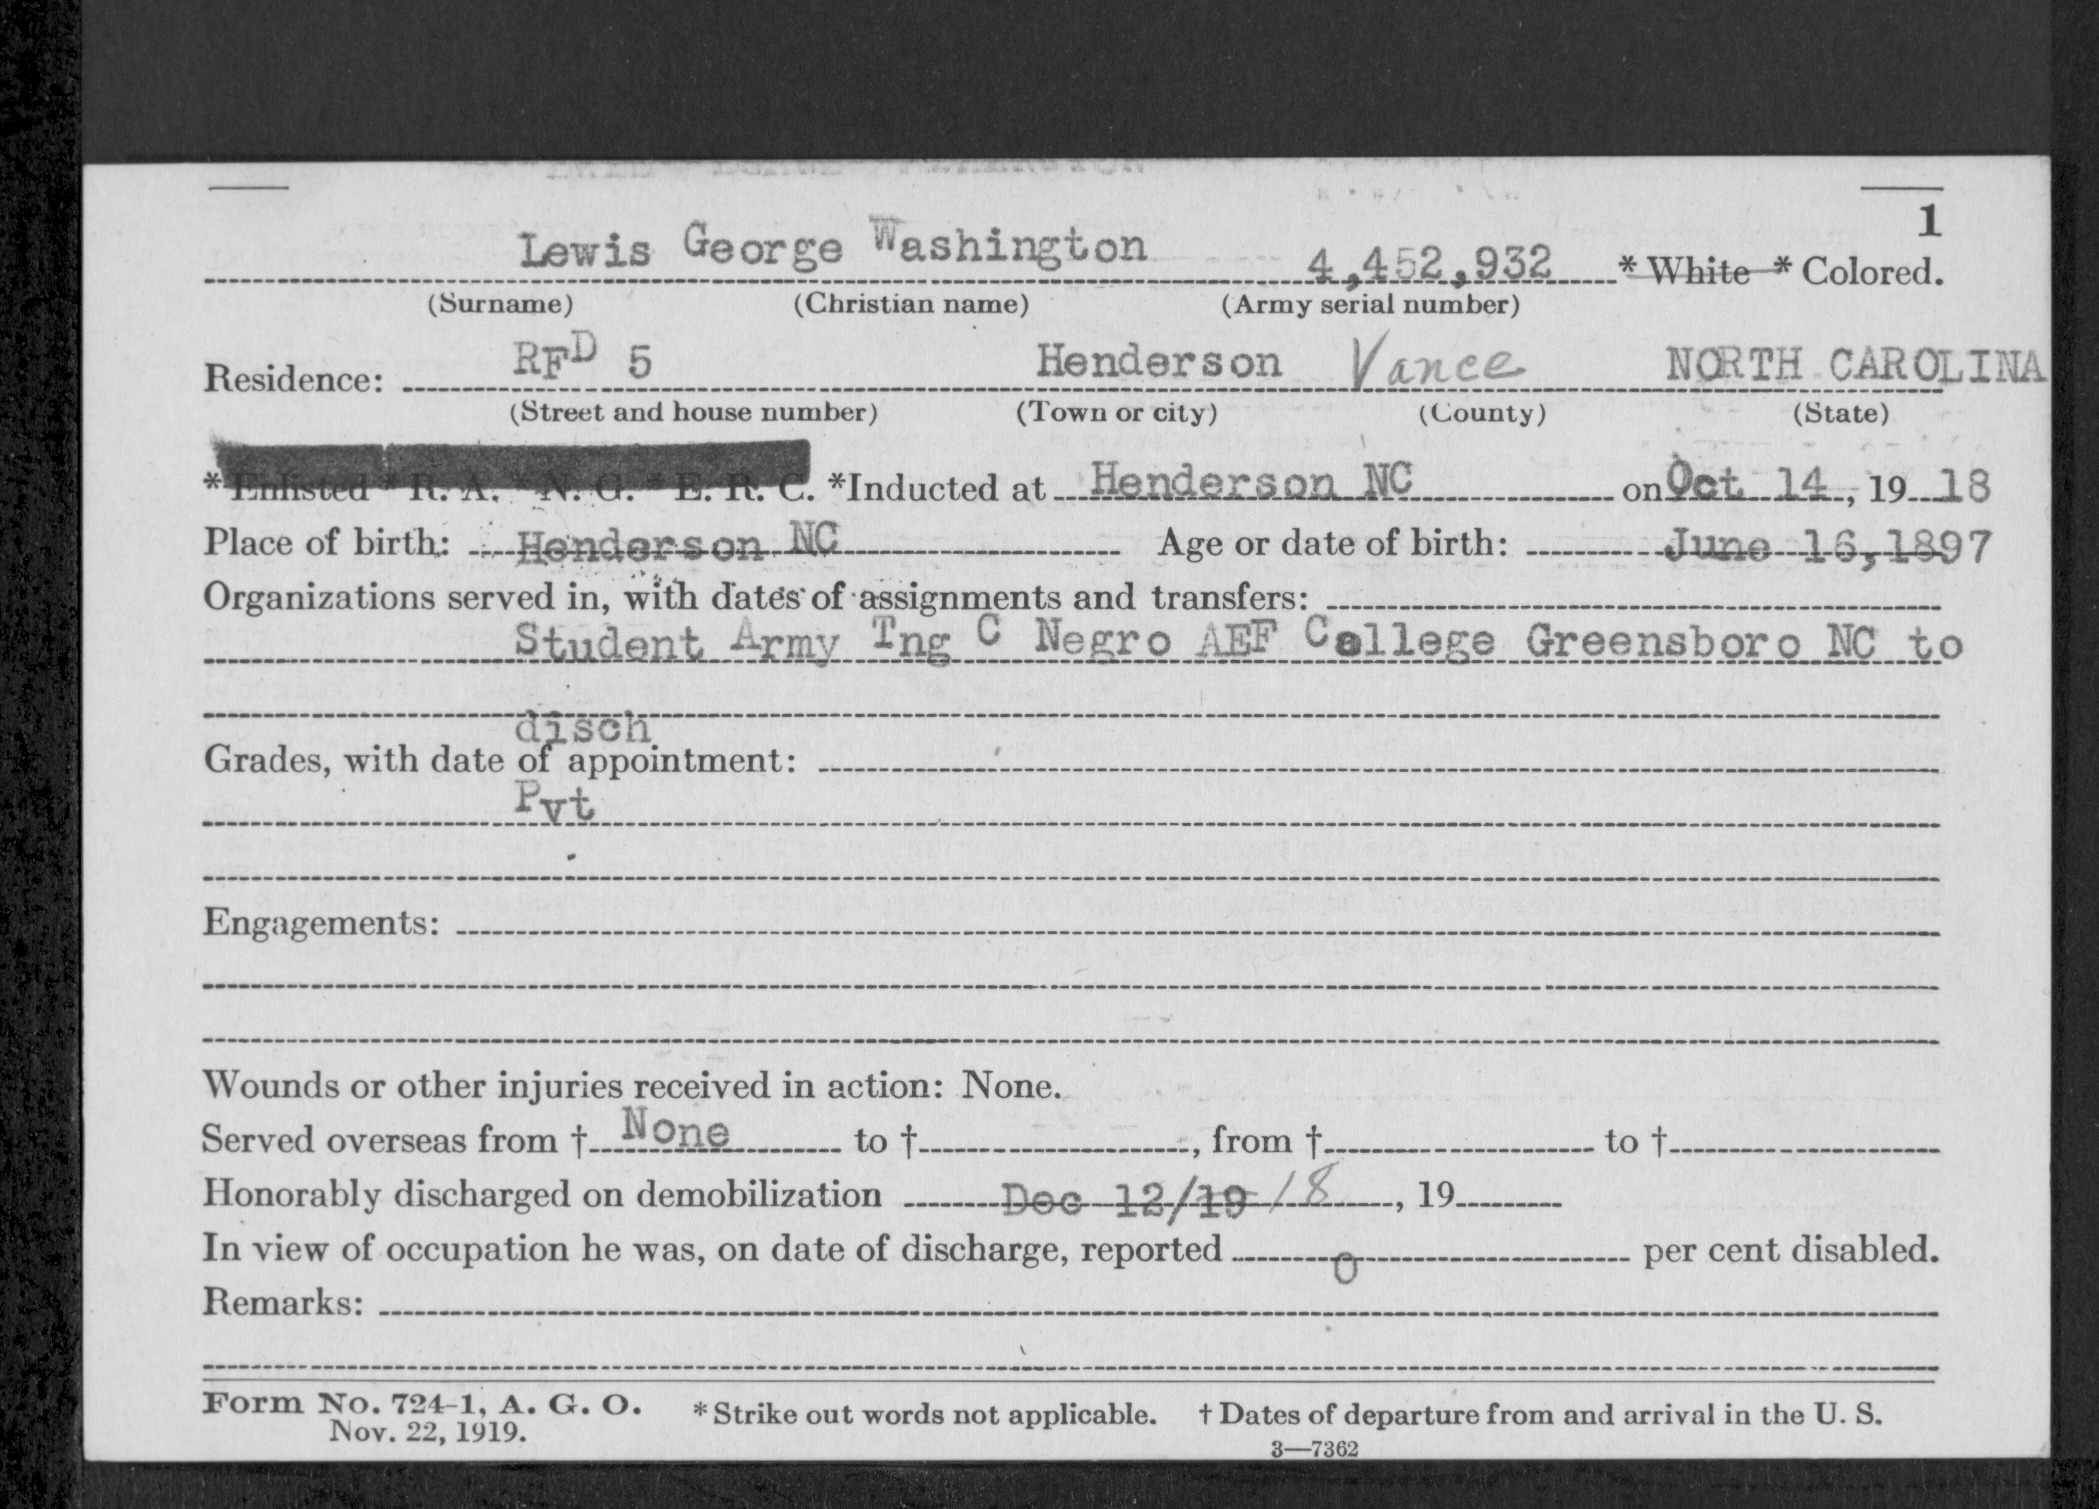 1
Lewis George Washington 4,452,932 * White * Colored.
(Surname) (Christian name) (Army serial number)
Residence: RFD 5 Henderson Vance NORTH CAROLINA
(Street and house number) (Town or city) (County) (State)
* Enlisted * R. A. * N. G. * E. R. C. *Inducted at Henderson NC on Oct 14, 19 18
Place of birth: Henderson NC Age or date of birth: June 16,1897
Organizations served in, with dates of assignments and transfers:
Student Army Tng C Negro AEF College Greensboro NC to
disch
Grades, with date of appointment:
Pvt
Engagements:
Wounds or other injuries received in action: None.
Served overseas from † None to †, from † to †
Honorably discharged on demobilization Dec 12/19 18, 19
In view of occupation he was, on date of discharge, reported 0 per cent disabled.
Remarks:
Form No. 724-1, A. G. O. *Strike out words not applicable. † Dates of departure from and arrival in the U. S.
Nov. 22, 1919.
3—7362